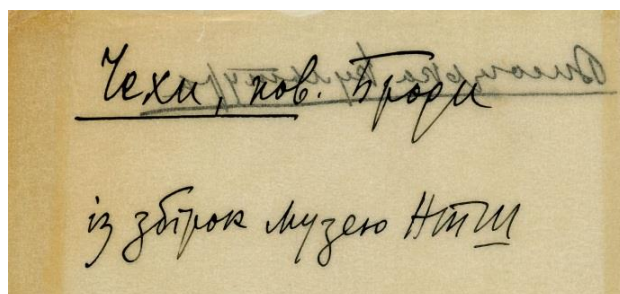 Чехи, пов. Броди
із збірок музею НТШ